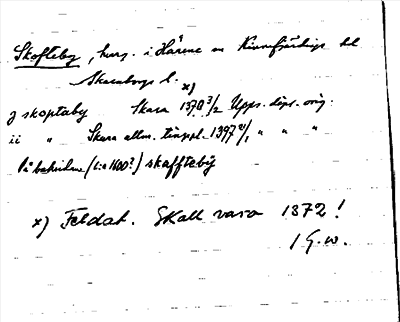 Skofteby, herrg. i Härene sn Kinnefjärdings hd
Skaraborgs l. x)
j skoptaby Skara 1370 3/2 Upps. dipl. orig.
ii " Skara allm. tingpl. 1397 2/1 " " "
På baksidan (c:a 1600?) skaffteby
x) Feldat. Skall vara 1372!
/ G.W.